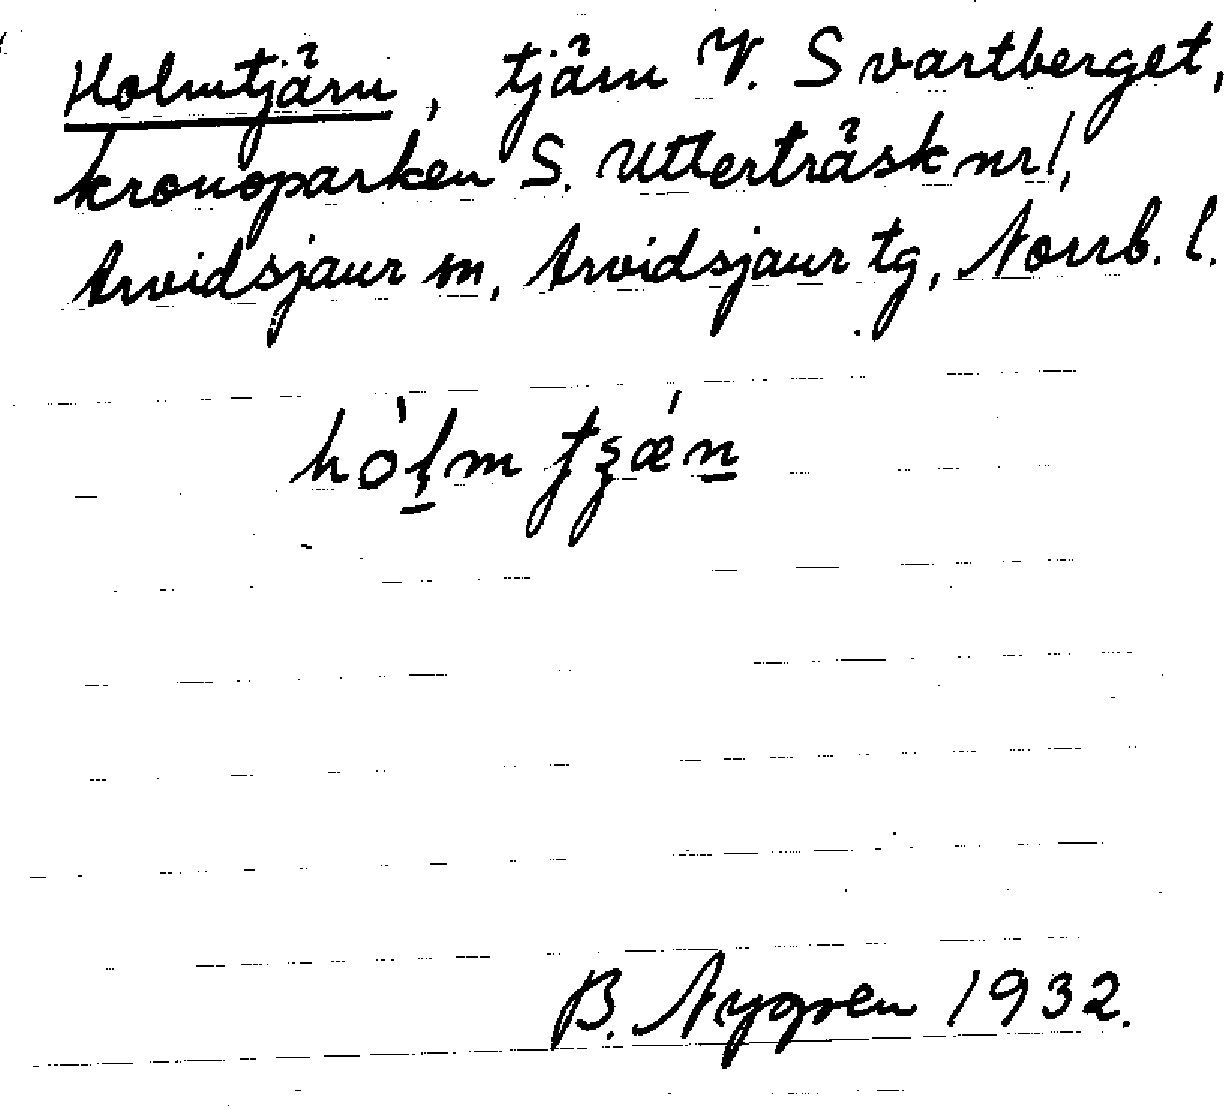 Holmtjärn, tjärn V. Svartberget,
kronoparken S. Utterträsk nr 1,
Arvidsjaur sn, Arvidsjaur tg, Norrb. l.
B. Nygren 1932.